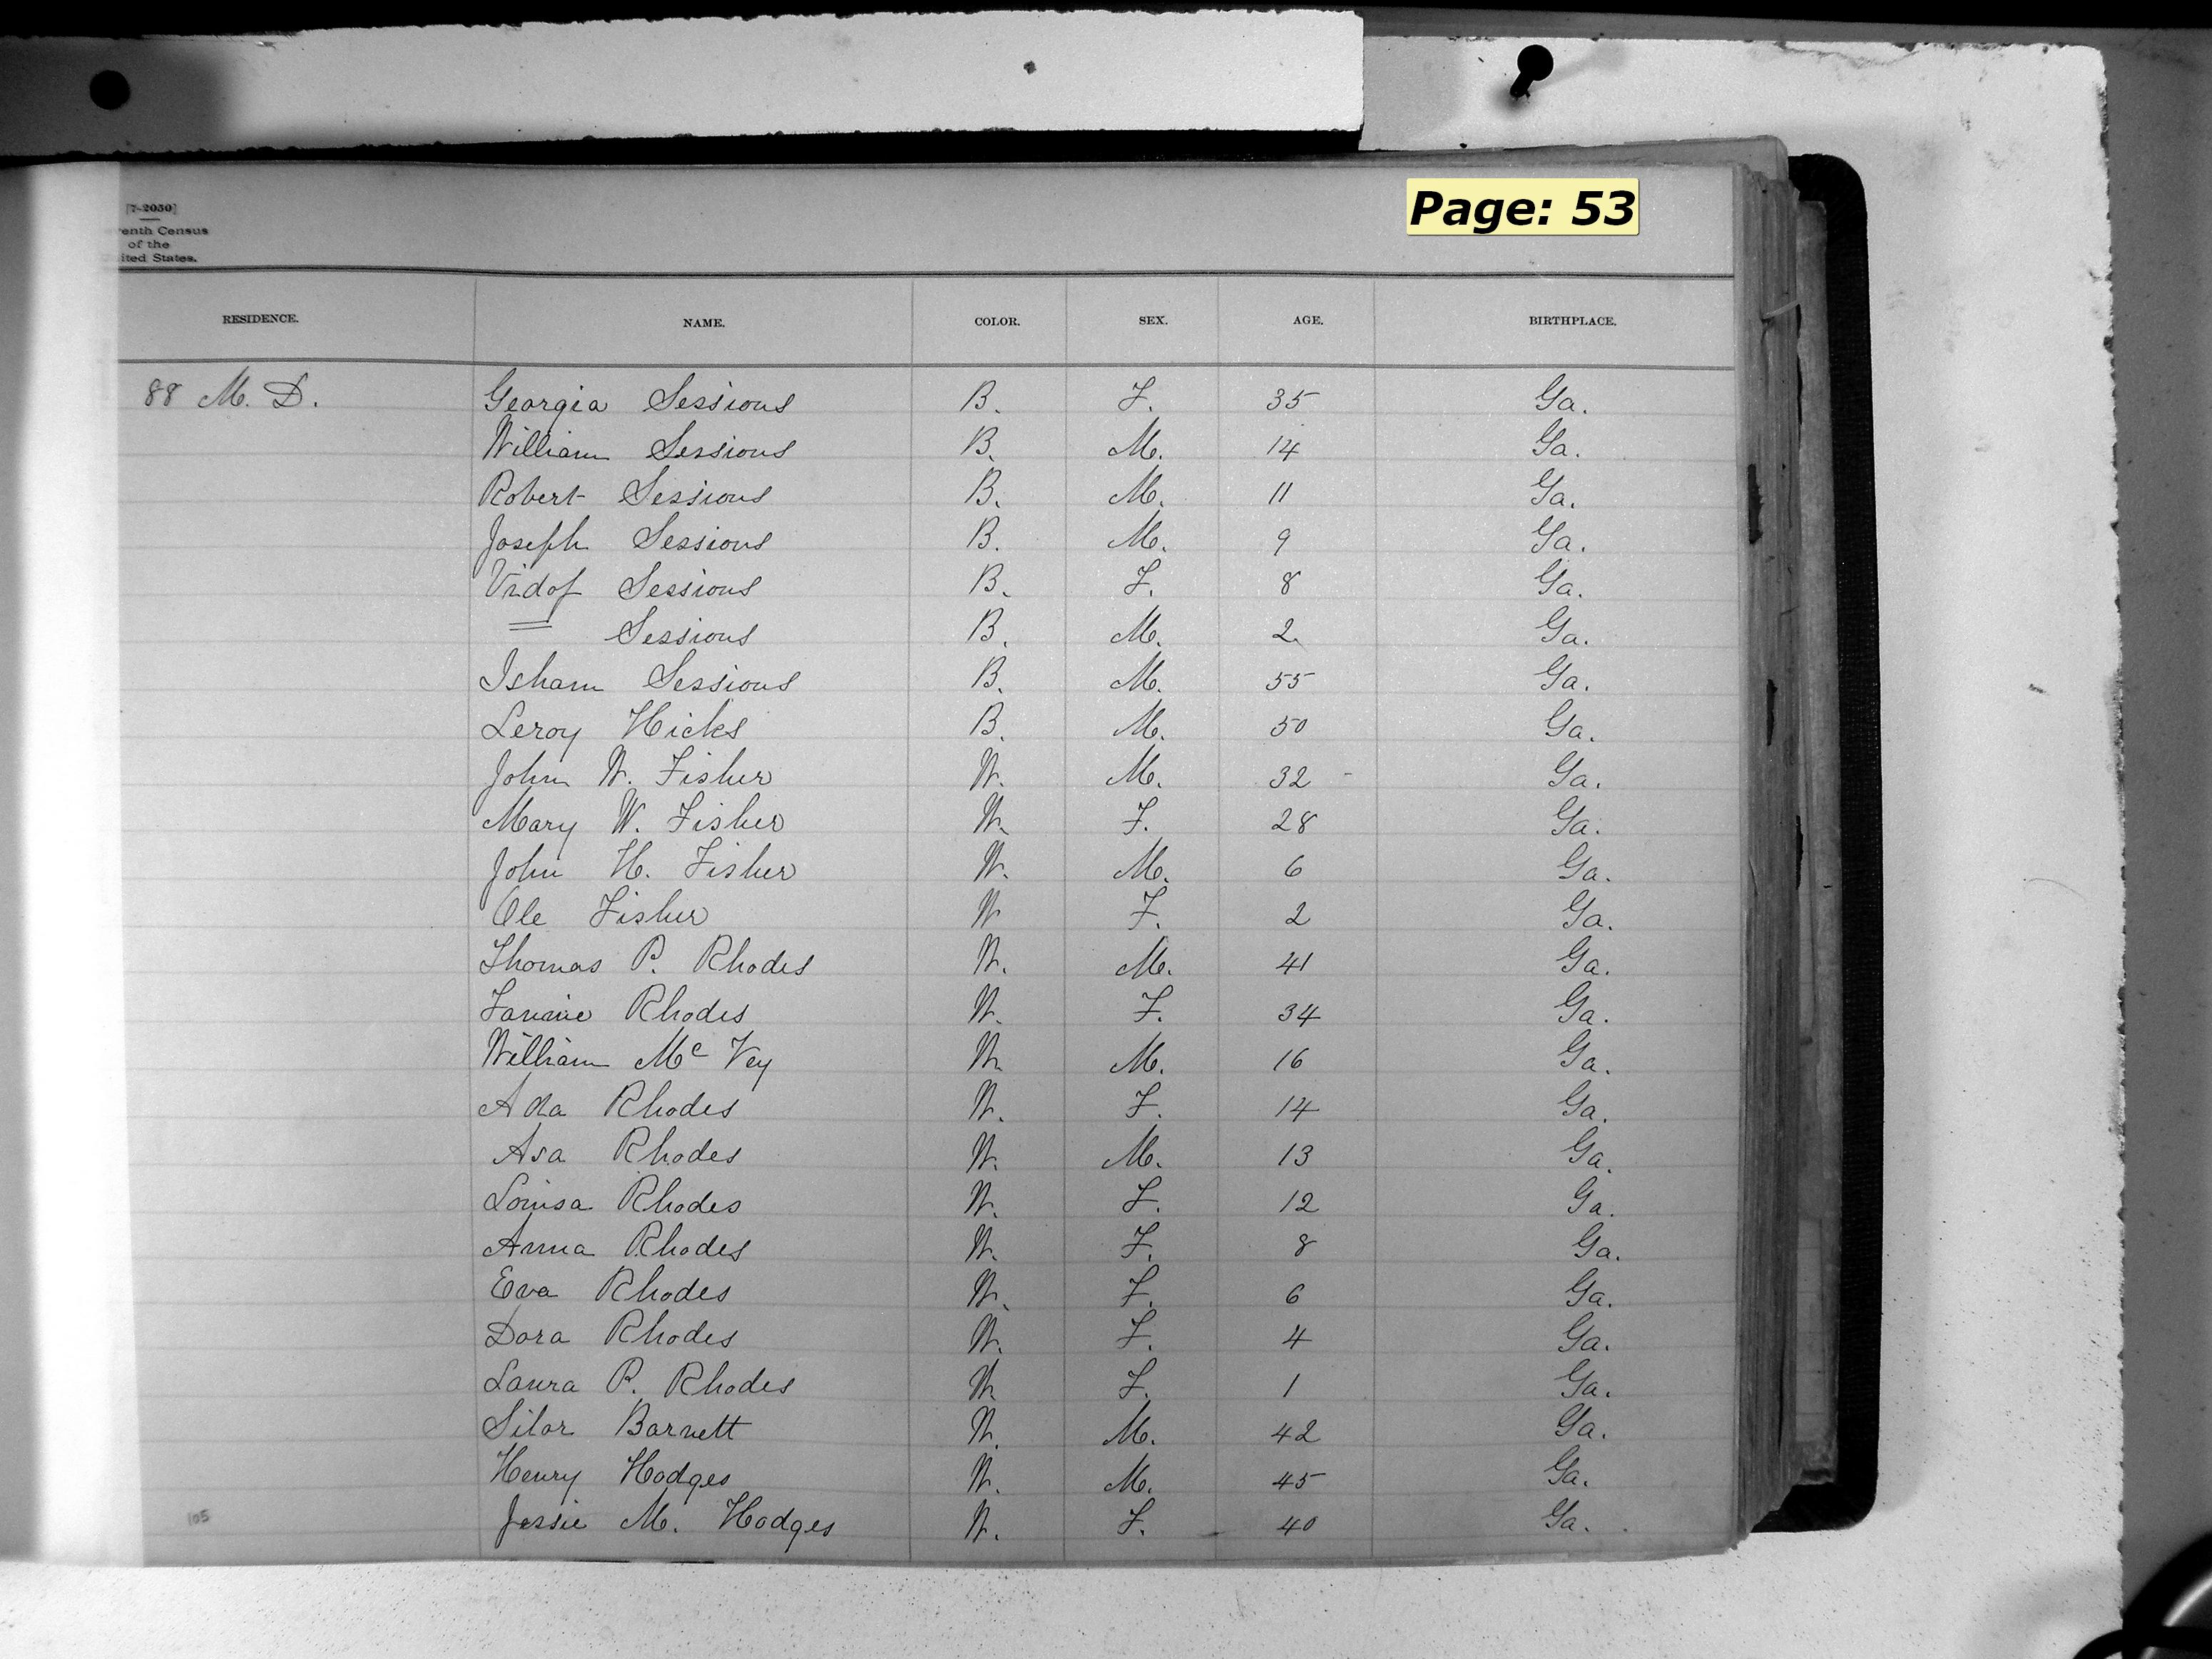 Page: 53
[7-2050]
venth Census
of the
ited States.
RESIDENCE. NAME. COLOR. SEX. AGE. BIRTHPLACE.
88 M. D. Georgia Sessions B. F. 35 Ga.
William Sessions B. M. 14 Ga.
Robert Sessions B. M. 11 Ga.
Joseph Sessions B. M. 9 Ga.
Sessions B. F. 8 Ga.
= Sessions B. M. 2 Ga.
Isham Sessions B. M. 55 Ga.
Leroy Hicks B. M. 50 Ga.
John W. Fisher W. M. 32 - Ga.
Mary W. Fisher W. F. 28 Ga.
John H. Fisher W. M. 6 Ga.
Ole Fisher W F. 2 Ga.
Thomas P. Rhodes W. M. 41 Ga.
Fannie Rhodes W. F. 34 Ga.
William Mc Vey W. M. 16 Ga.
Ada Rhodes W. F. 14 Ga.
Asa Rhodes W. M. 13 Ga.
Louisa Rhodes W. F. 12 Ga.
Anna Rhodes W. F. 8 Ga.
Eva Rhodes W. F. 6 Ga.
Dora Rhodes W. F. 4 Ga.
Laura P. Rhodes W F. 1 Ga.
Silar Barnett W. M. 42 Ga.
Henry Hodges W. M. 45 Ga.
Jessie M. Hodges W. F. 40 Ga.
105